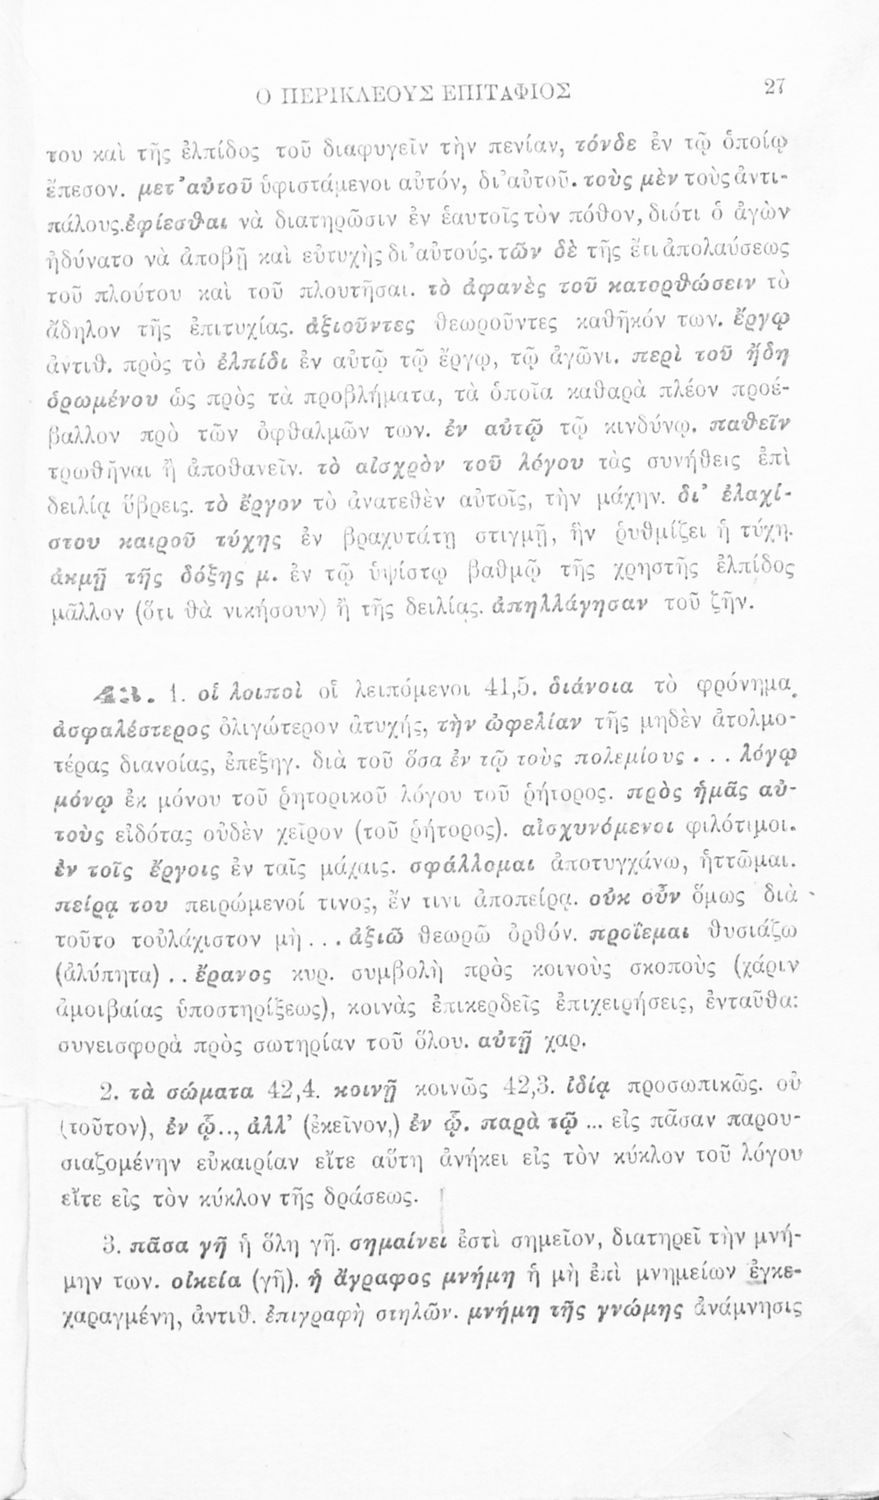 Ο ΠΕΡΙΚΛΕΟΥΣ ΕΠΙΤΑΦΙΟΣ 27
του καὶ τῆς ἐλπίδος τοῦ διαφυγεῖν τὴν πενίαν, τόνδε ἐν τῷ ὁποίῳ
ἔπεσον. μετ’ αὐτοῦ ὑφιστάμενοι αὐτόν, δι’αὐτοῦ. τοὺς μὲν τοὺς ἀντι-
πάλους. ἐφίεσθαι νὰ διατηρῶσιν ἐν ἑαυτοῖς τὸν πόθον, διότι ὁ ἀγὼν
ἠδύνατο νὰ ἀποβῇ καὶ εὐτυχὴς δι’αὐτούς. τῶν δὲ τῆς ἔτι ἀπολαύσεως
τοῦ πλούτου καὶ τοῦ πλουτῆσαι. τὸ ἀφανὲς τοῦ κατορθώσειν τὸ
ἄδηλον τῆς ἐπιτυχίας. ἀξιοῦντες θεωροῦντες καθῆκόν των. ἔργῳ
ἀντιθ. πρὸς τὸ ἐλπίδι ἐν αὐτῷ τῷ ἔργῳ, τῷ ἀγῶνι. περὶ τοῦ ἤδη
ὁρωμένου ὡς πρὸς τὰ προβλήματα, τὰ ὁποῖα καθαρὰ πλέον προέ-
βαλλον πρὸ τῶν ὀφθαλμῶν των. ἐν αὐτῷ τῷ κινδύνῳ. παθεῖν
τρωθῆναι ἢ ἀποθανεῖν. τὸ αἰσχρὸν τοῦ λόγου τὰς συνήθεις ἐπὶ
δειλίᾳ ὕβρεις. τὸ ἔργον τὸ ἀνατεθὲν αὐτοῖς, τὴν μάχην. δι’ ἐλαχί-
στου καιροῦ τύχης ἐν βραχυτάτῃ στιγμῇ, ἣν ῥυθμίζει ἡ τύχη.
ἀκμῇ τῆς δόξης μ. ἐν τῷ ὑψίστῳ βαθμῷ τῆς χρηστῆς ἐλπίδος
μᾶλλον (ὅτι θὰ νικήσουν) ἢ τῆς δειλίας. ἀπηλλάγησαν τοῦ ζῆν.
1. οἱ λοιποὶ οἱ λειπόμενοι 41,5. διάνοια τὸ φρόνημα.
ἀσφαλέστερος ὀλιγώτερον ἀτυχής, τὴν ὠφελίαν τῆς μηδὲν ἀτολμο-
τέρας διανοίας, ἐπεξηγ. διὰ τοῦ ὅσα ἐν τῷ τοὺς πολεμίους . . . λόγῳ
μόνῳ ἐκ μόνου τοῦ ῥητορικοῦ λόγου τοῦ ῥήτορος. πρὸς ἡμᾶς αὐ-
τοὺς εἰδότας οὐδὲν χεῖρον (τοῦ ῥήτορος). αἰσχυνόμενοι φιλότιμοι.
ἐν τοῖς ἔργοις ἐν ταῖς μάχαις. σφάλλομαι ἀποτυγχάνω, ἡττῶμαι.
πείρᾳ του πειρώμενοί τινος, ἔν τινι ἀποπείρᾳ. οὐκ οὖν ὅμως διὰ
τοῦτο τοὐλάχιστον μὴ . . . ἀξιῶ θεωρῶ ὀρθόν. προΐεμαι θυσιάζω
(ἀλύπητα) . . ἔρανος κυρ. συμβολὴ πρὸς κοινοὺς σκοποὺς (χάριν
ἀμοιβαίας ὑποστηρίξεως), κοινὰς ἐπικερδεῖς ἐπιχειρήσεις, ἐνταῦθα:
συνεισφορὰ πρὸς σωτηρίαν τοῦ ὅλου. αὐτῇ χαρ.
2. τὰ σώματα 42,4. κοινῇ κοινῶς 42,3. ἰδίᾳ προσωπικῶς. οὐ
(τοῦτον), ἐν ᾧ.., ἀλλ’ (ἐκεῖνον,) ἐν ᾧ. παρὰ τῷ ... εἰς πᾶσαν παρου-
σιαζομένην εὐκαιρίαν εἴτε αὕτη ἀνήκει εἰς τὸν κύκλον τοῦ λόγου
εἴτε εἰς τὸν κύκλον τῆς δράσεως.
3. πᾶσα γῆ ἡ ὅλη γῆ. σημαίνει ἐστὶ σημεῖον, διατηρεῖ τὴν μνή-
μην των. οἰκεία (γῆ). ἡ ἄγραφος μνήμη ἡ μὴ ἐπὶ μνημείων ἐγκε-
χαραγμένη, ἀντιθ. ἐπιγραφὴ στηλῶν. μνήμη τῆς γνώμης ἀνάμνησις